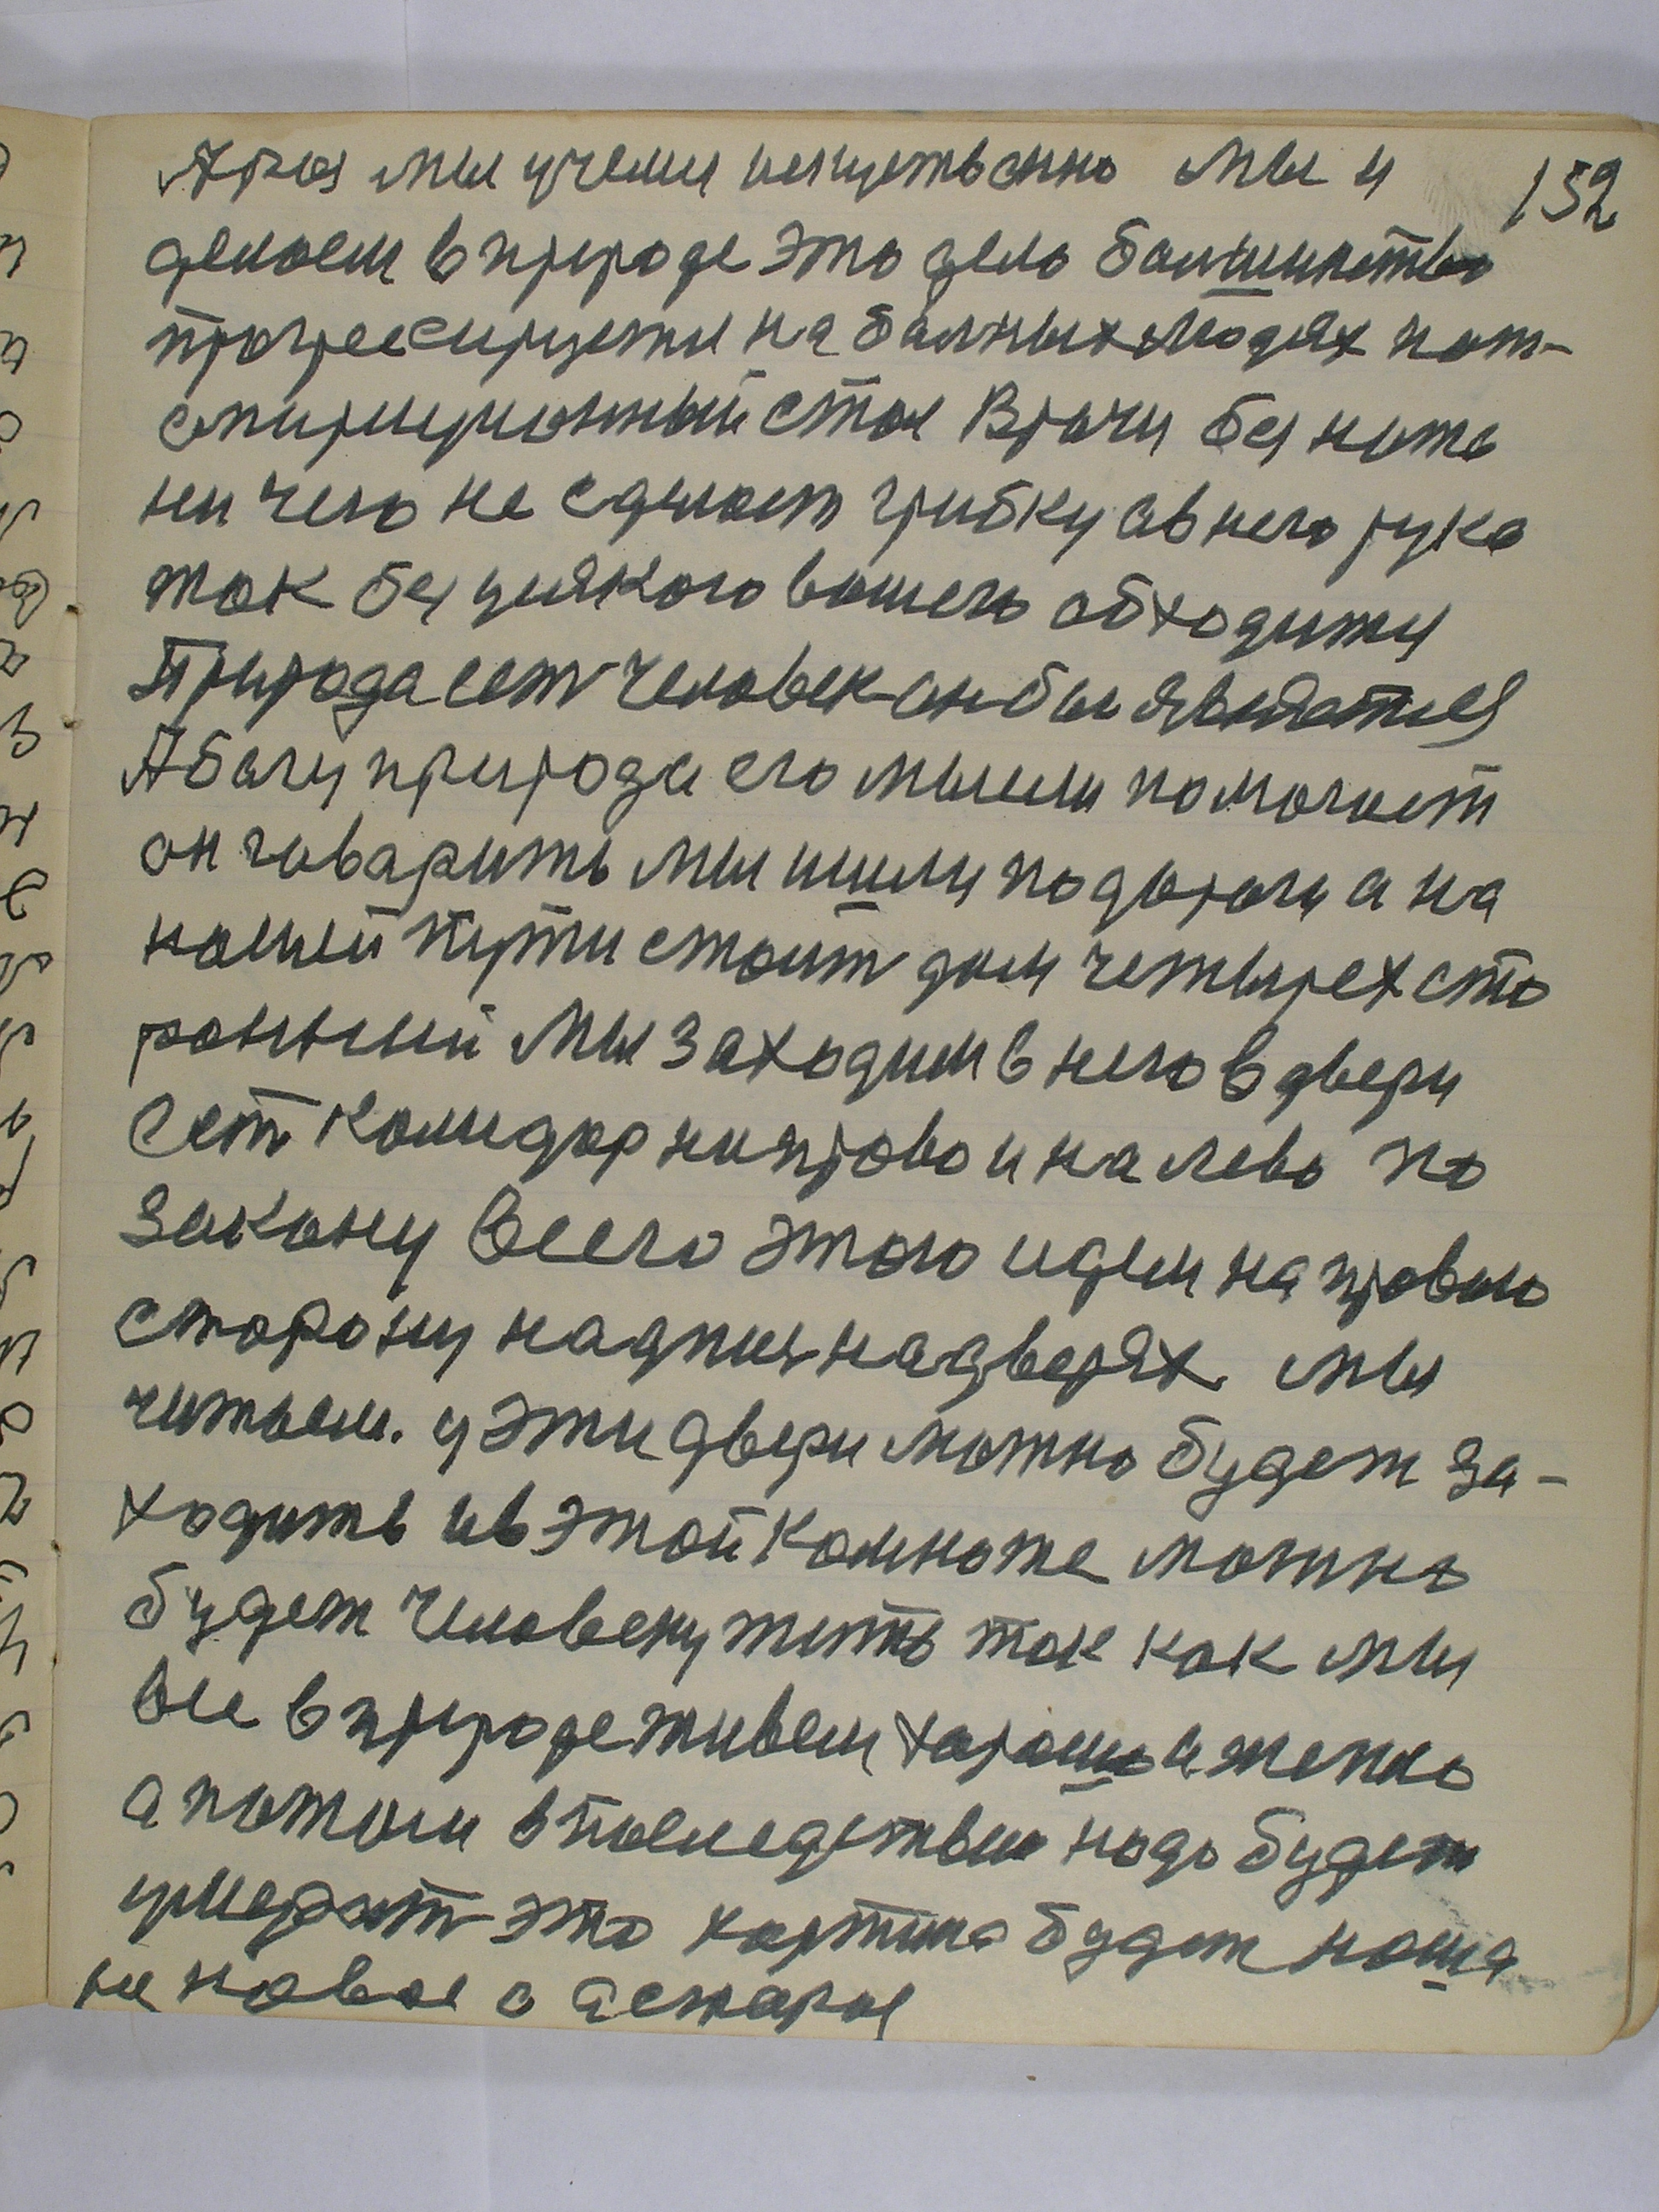 мы учёми искуствено мы и 152
делаем в природе это дело балшинство
прогресируети на балных людях
апирационый стол Врачи без ножа
ни чего не сделает грибку а в него рука
так без усякого вашего обходити
Природа ест человек он бы явится
А богу природа его мысли помогает
он говарить мы шли подороги а на
нашей пути стоит дом четырех сто
роний мы заходим в него в двери
ест калидор направо и на лево по
закону всего этого идем на правою
сторону надпис на дверях мы
читаем. у эти двери можно будет за-
ходить и в этой комнате можно
будет человеку жить так как мы
все в природе живем харашо и тепло
а потом в последствии надо будет
умерат это картина будет наша
не новое а астарое